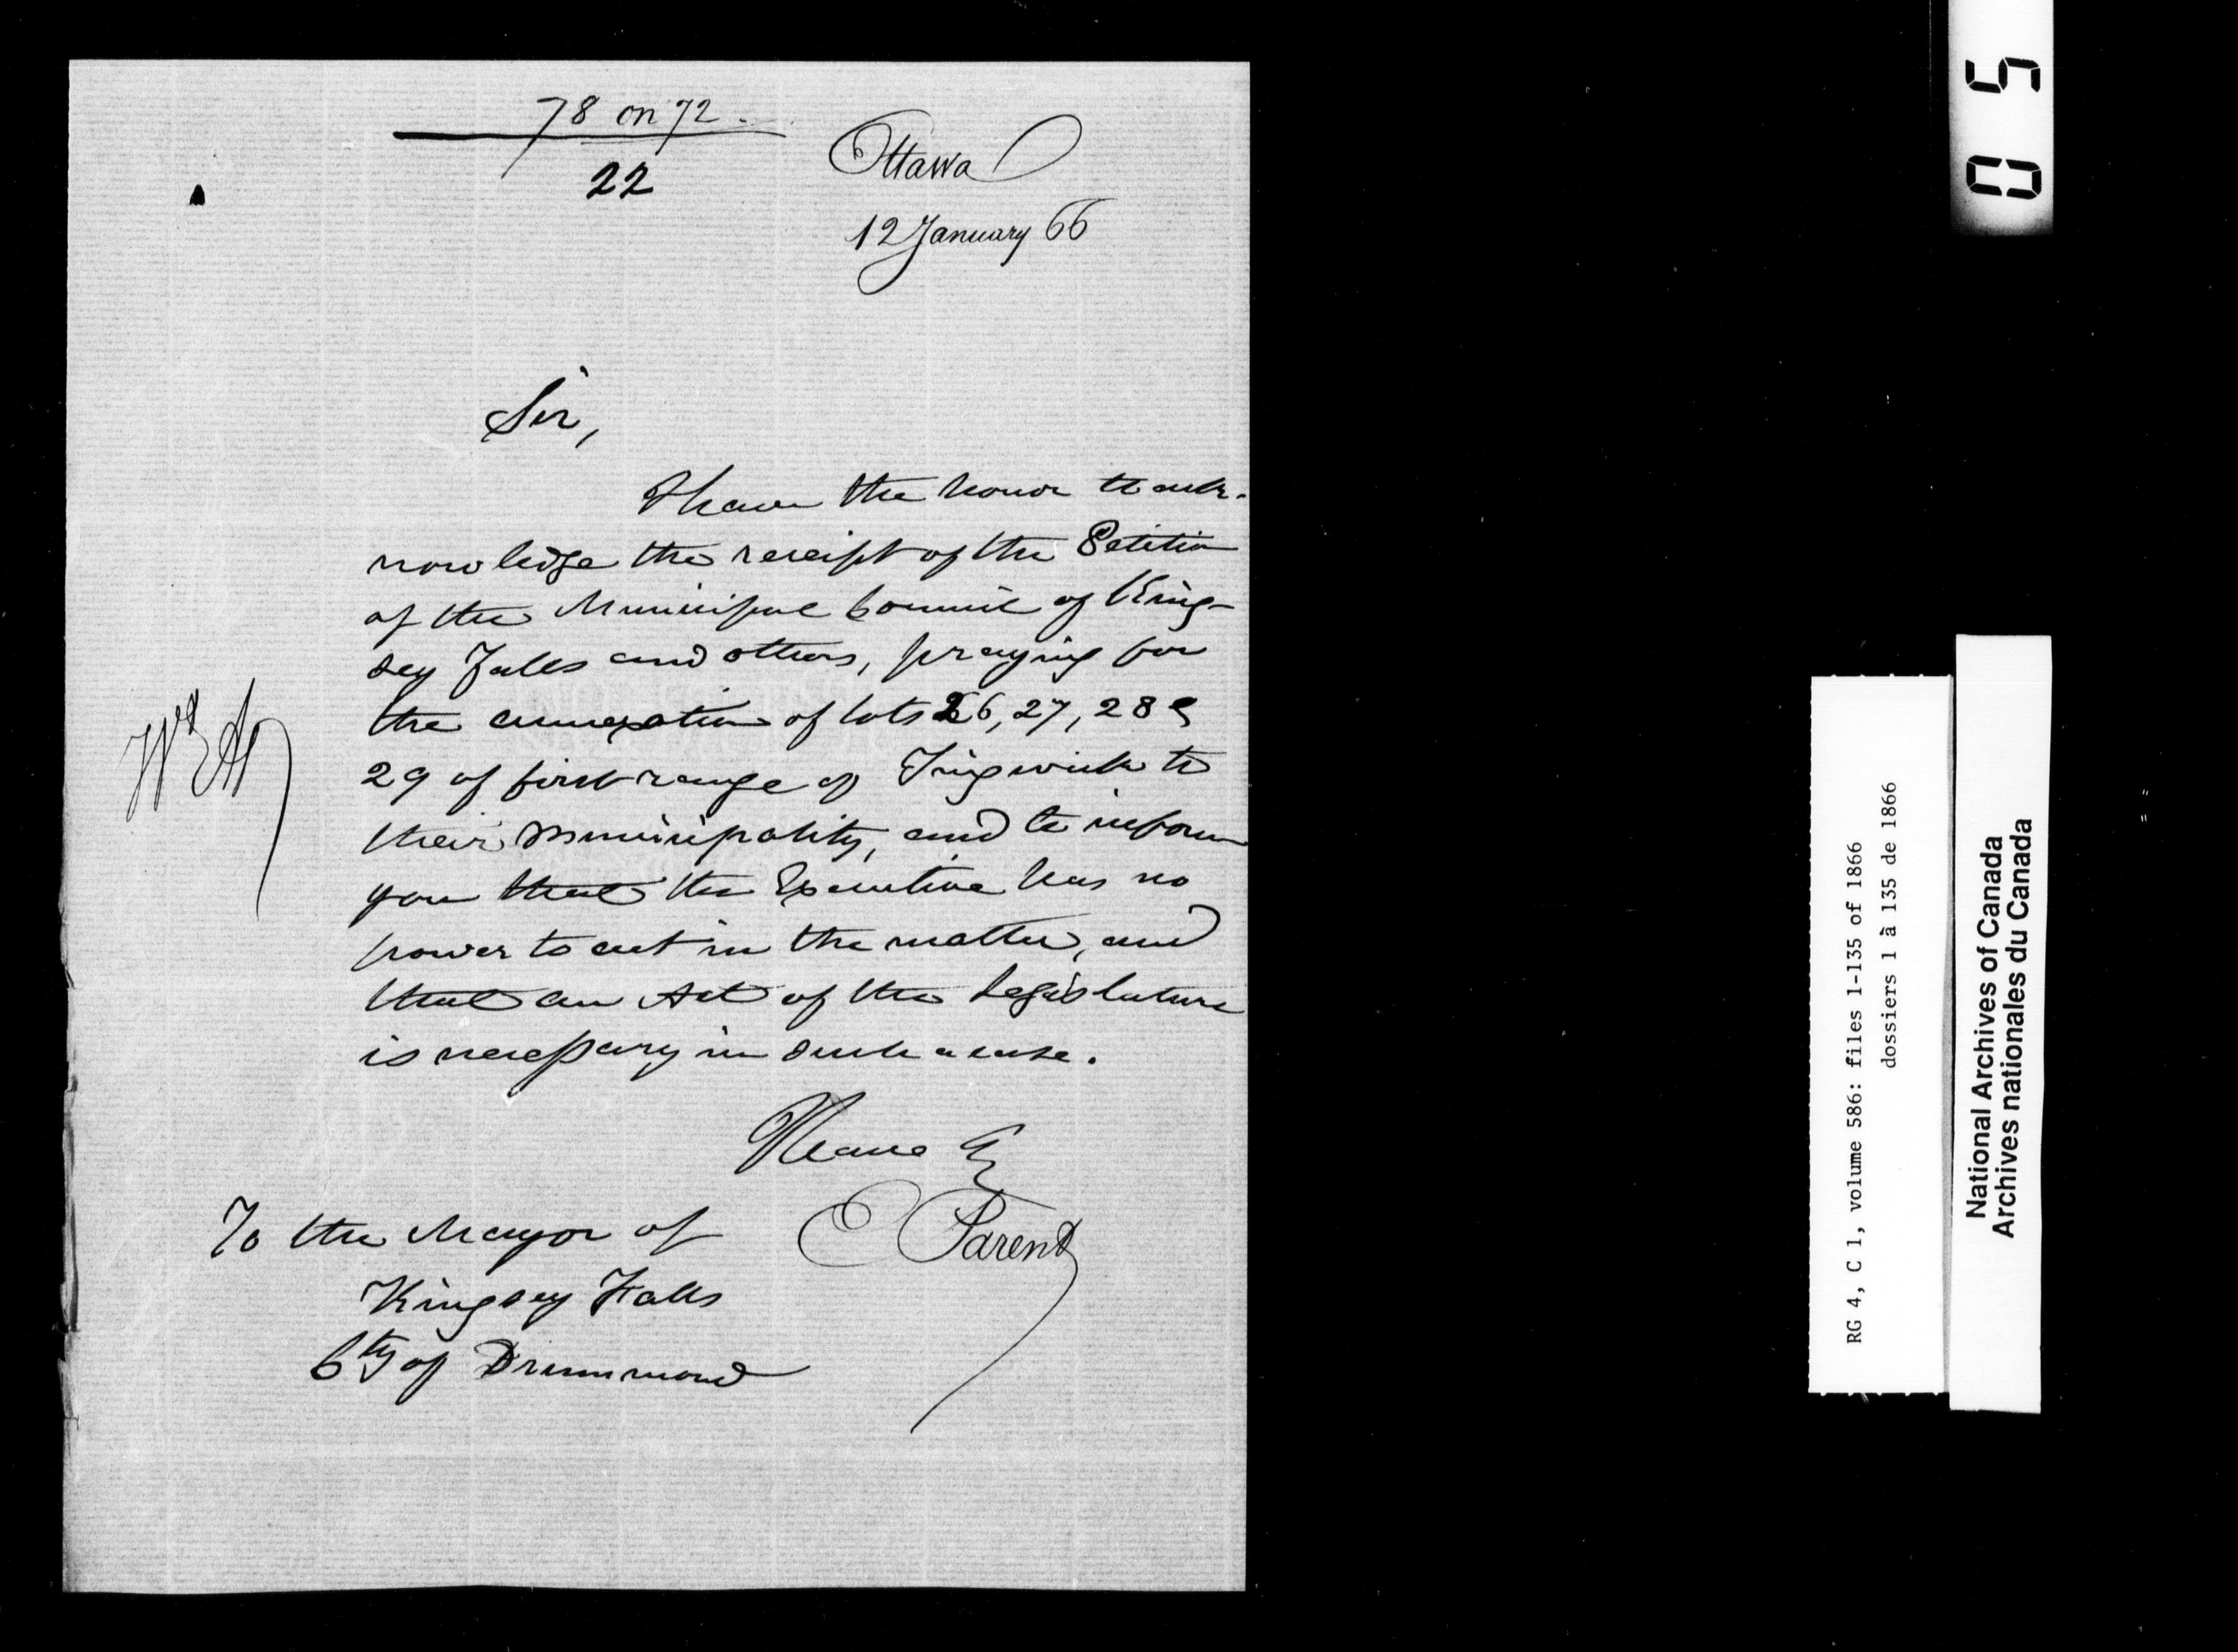 78 on 72.
22
Ottawa
12 January 66
Sir,
I have the honor to ack-
nowledge the receipt of the Petition
of the Municipal Council of King-
sey Falls and others, praying for
the annexation of lots 26, 27, 28 &
29 of first range of Tingwick to
their municipality, and to inform
you that the Executive has no
power to act in the matter, and
that an Act of the Legislature
is necessary in such a case.
I have &
E Parent
To the Mayor of
Kingsey Falls
Cty of Drummond
05
RG 4, C 1, volume 586: files 1-135 of 1866
dossiers 1 à 135 de 1866
National Archives of Canada
Archives nationales du Canada